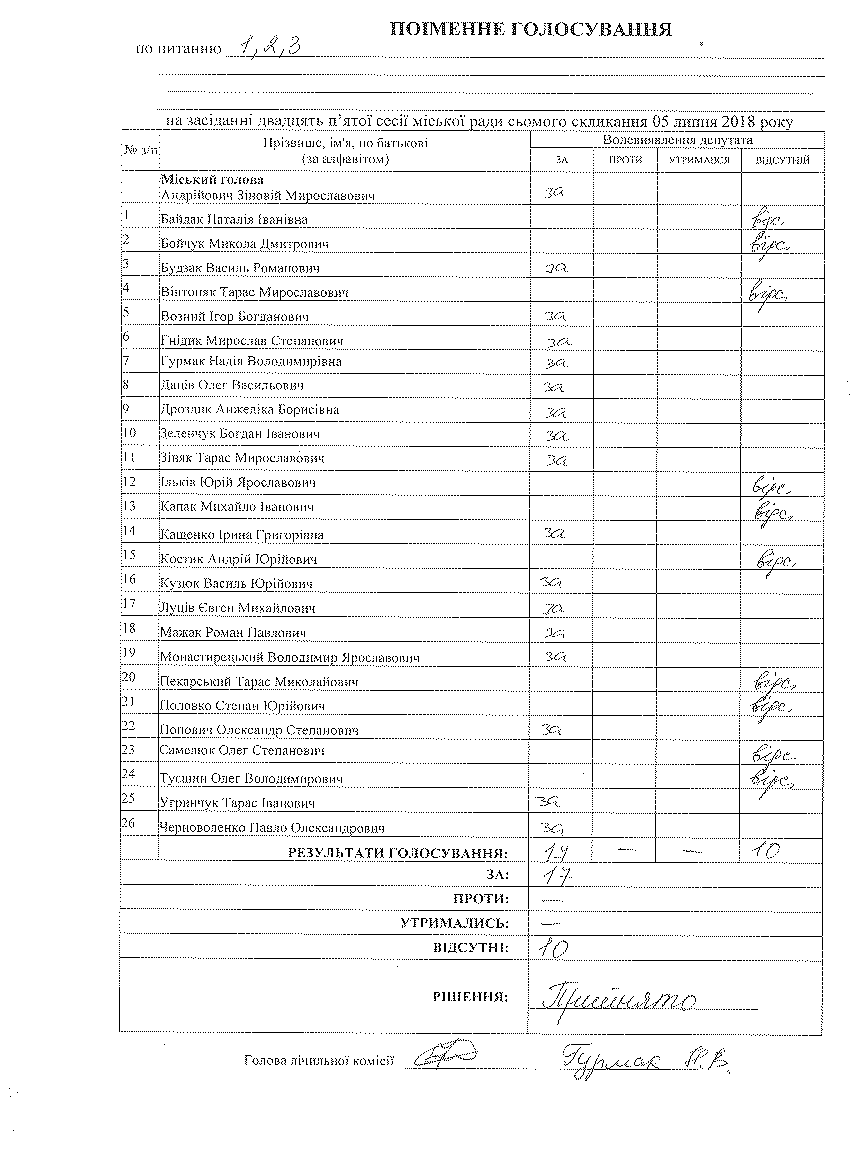 ПОІМЕННЕ ГОЛОСУВАННЯ
по питанню 1,2,3
на засіданні двадцять п'ятої сесії міської ради сьомого скликання 05 липня 2018 року
№ з/п Прізвище, ім'я, по батькові (за алфавітом) Волевиявлення депутата
ЗА ПРОТИ УТРИМАВСЯ ВІДСУТНІЙ
Міський голова
Андрійович Зіновій Мирославович за
1 Байдак Наталія Іванівна відс.
2 Бойчук Микола Дмитрович відс.
3 Будзак Василь Романович за
4 Вінтоняк Тарас Мирославович відс.
5 Возний Ігор Богданович за
6 Гнідик Мирослав Степанович за
7 Гурмак Надія Володимирівна за
8 Даців Олег Васильович за
9 Дроздик Анжеліка Борисівна за
10 Зеленчук Богдан Іванович за
11 Зівяк Тарас Мирославович за
12 Ільків Юрій Ярославович відс.
13 Капак Михайло Іванович відс.
14 Кащенко Ірина Григорівна за
15 Костик Андрій Юрійович відс.
16 Кузюк Василь Юрійович за
17 Луців Євген Михайлович за
18 Мажак Роман Павлович за
19 Монастирецький Володимир Ярославович за
20 Пекарський Тарас Миколайович відс.
21 Половко Степан Юрійович відс.
22 Попович Олександр Степанович за
23 Самелюк Олег Степанович відс.
24 Тусшин Олег Володимирович відс.
25 Угринчук Тарас Іванович за
26 Черноволенко Павло Олександрович за
РЕЗУЛЬТАТИ ГОЛОСУВАННЯ: 17 — — 10
ЗА: 17
ПРОТИ: —
УТРИМАЛИСЬ: —
ВІДСУТНІ: 10
РІШЕННЯ: Прийнято
Голова лічильної комісії Гурмак Н.В.